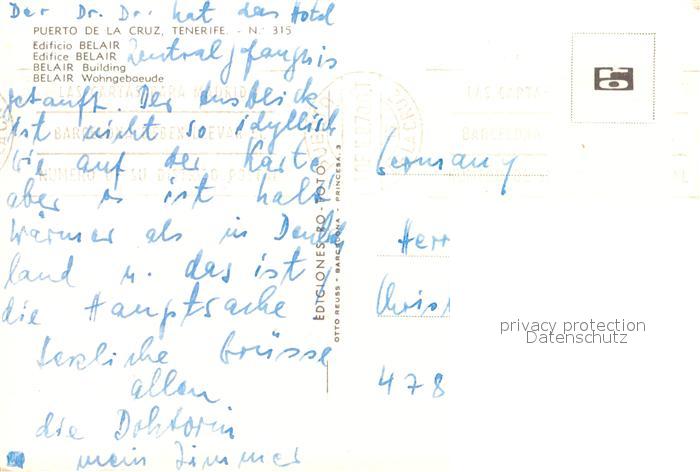 Der Dr. Dr. hat das Hotel
PUERTO DE LA CRUZ, TENERIFE. - N.° 315
Edificio BELAIR
Edifice BELAIR
BELAIR Building
BELAIR Wohngebaeude
Zentralgefängnis
getauft. Der Ausblick
ist nicht so idyllisch
wie auf der Karte
aber es ist halt
wärmer als in Deutsch
land u. das ist
die Hauptsache
herzliche Grüsse
allen
die Doktorin
mein Zimmer
EDICIONES RO-FOTO
OTTO REUSS - BARCELONA - PRINCESA, 3
LAS CARTAS PARA MADRID
BARCELONA
LAS CARTA-
BARCELONA
NUMERO DE SU DISTRITO POSTAL
Germany
Herr
Christ
478
privacy protection
Datenschutz